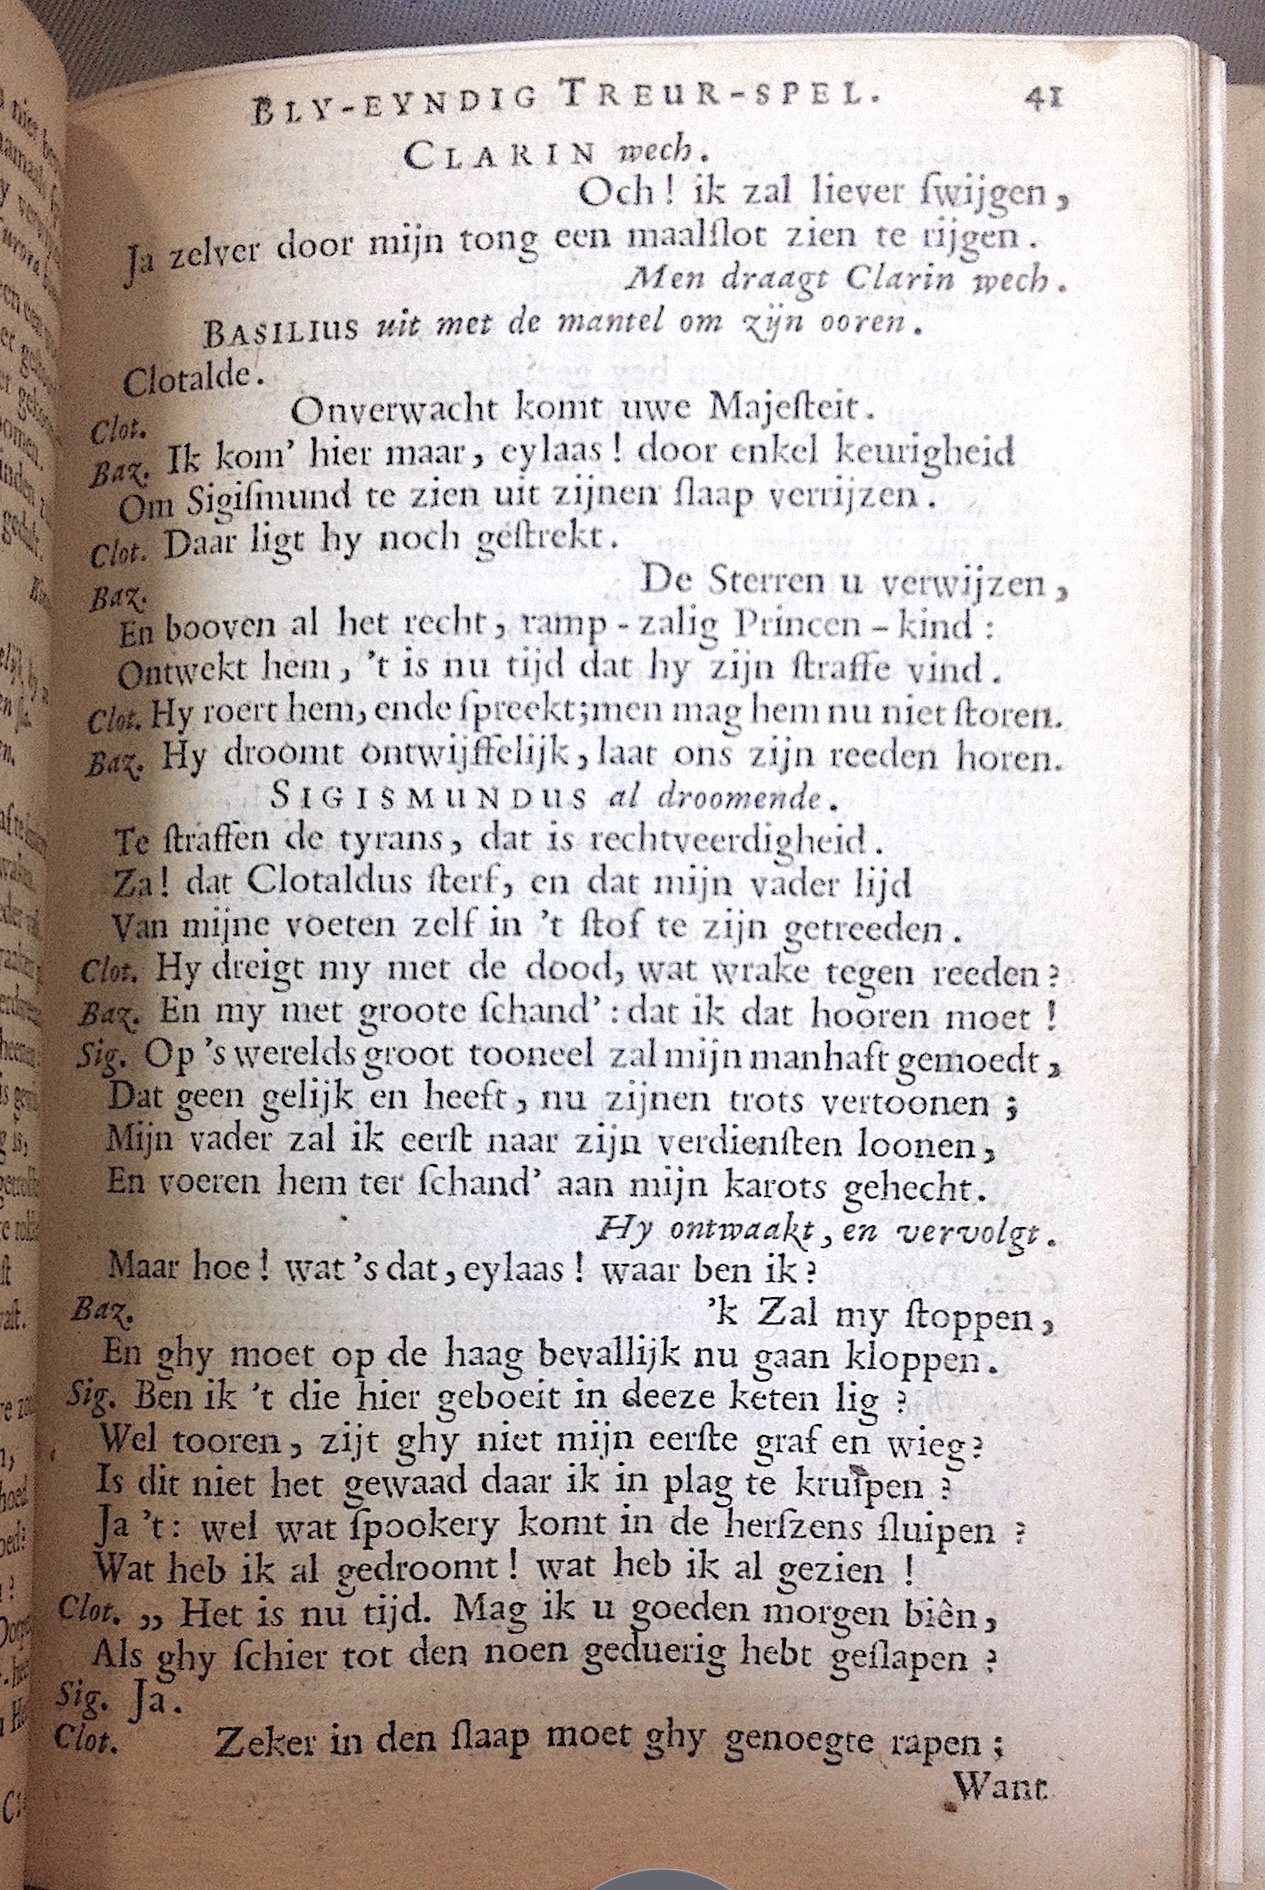 BLY-EYNDIG TREUR-SPEL. 41
CLARIN wech.
Och! ik zal liever ſwijgen,
Ja zelver door mijn tong een maalſlot zien te rijgen.
Men draagt Clarin wech.
BASILIUS uit met de mantel om zijn ooren.
Clotalde.
Clot. Onverwacht komt uwe Majeſteit.
Baz. Ik kom' hier maar, eylaas! door enkel keurigheid
Om Sigiſmund te zien uit zijnen ſlaap verrijzen.
Clot. Daar ligt hy noch geſtrekt.
Baz. De Sterren u verwijzen,
En booven al het recht, ramp-zalig Princen-kind:
Ontwekt hem, 't is nu tijd dat hy zijn ſtraffe vind.
Clot. Hy roert hem, ende ſpreekt; men mag hem nu niet ſtoren.
Baz. Hy droomt ontwijffelijk, laat ons zijn reeden horen.
SIGISMUNDUS al droomende.
Te ſtraffen de tyrans, dat is rechtveerdigheid.
Za! dat Clotaldus ſterf, en dat mijn vader lijd
Van mijne voeten zelf in 't ſtof te zijn getreeden.
Clot. Hy dreigt my met de dood, wat wrake tegen reeden?
Baz. En my met groote ſchand': dat ik dat hooren moet!
Sig. Op 's werelds groot tooneel zal mijn manhaft gemoedt,
Dat geen gelijk en heeft, nu zijnen trots vertoonen;
Mijn vader zal ik eerſt naar zijn verdienſten loonen,
En voeren hem ter ſchand' aan mijn karots gehecht.
Hy ontwaakt, en vervolgt.
Maar hoe! wat 's dat, eylaas! waar ben ik?
Baz. 'k Zal my ſtoppen,
En ghy moet op de haag bevallijk nu gaan kloppen.
Sig. Ben ik 't die hier geboeit in deeze keten lig?
Wel tooren, zijt ghy niet mijn eerſte graf en wieg?
Is dit niet het gewaad daar ik in plag te kruipen?
Ja 't: wel wat ſpookery komt in de herſzens ſluipen?
Wat heb ik al gedroomt! wat heb ik al gezien!
Clot. „ Het is nu tijd. Mag ik u goeden morgen biên,
Als ghy ſchier tot den noen geduerig hebt geſlapen?
Sig. Ja.
Clot. Zeker in den ſlaap moet ghy genoegte rapen;
Want